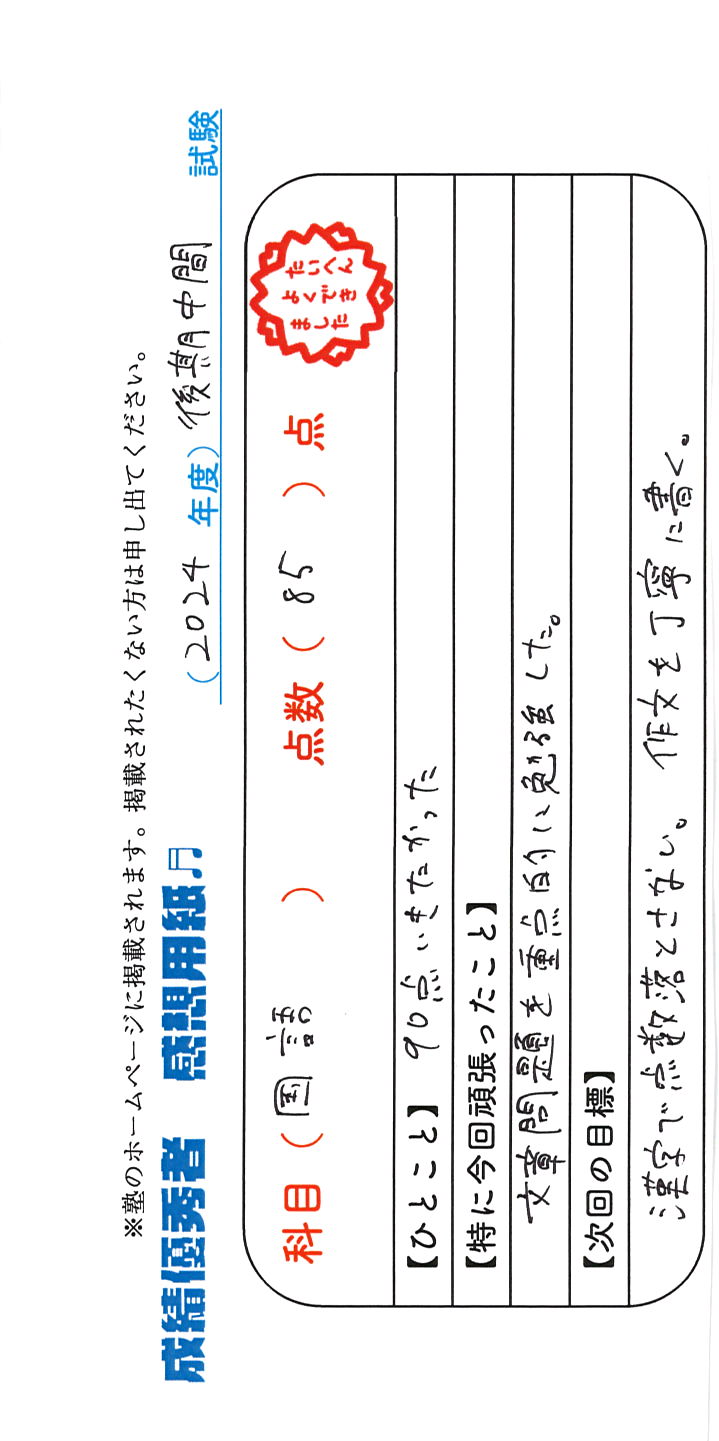 ※塾のホームページに掲載されます。掲載されたくない方は申し出てください。
成績優秀者 感想用紙♬ (2024年度)後期中間 試験
科目(国語) 点数(85)点
たいへん
よくでき
ました
【ひとこと】 90点いきたかった
【特に今回頑張ったこと】
文章問題を重点的に勉強した。
【次回の目標】
漢字で点数落とさない。 作文を丁寧に書く。